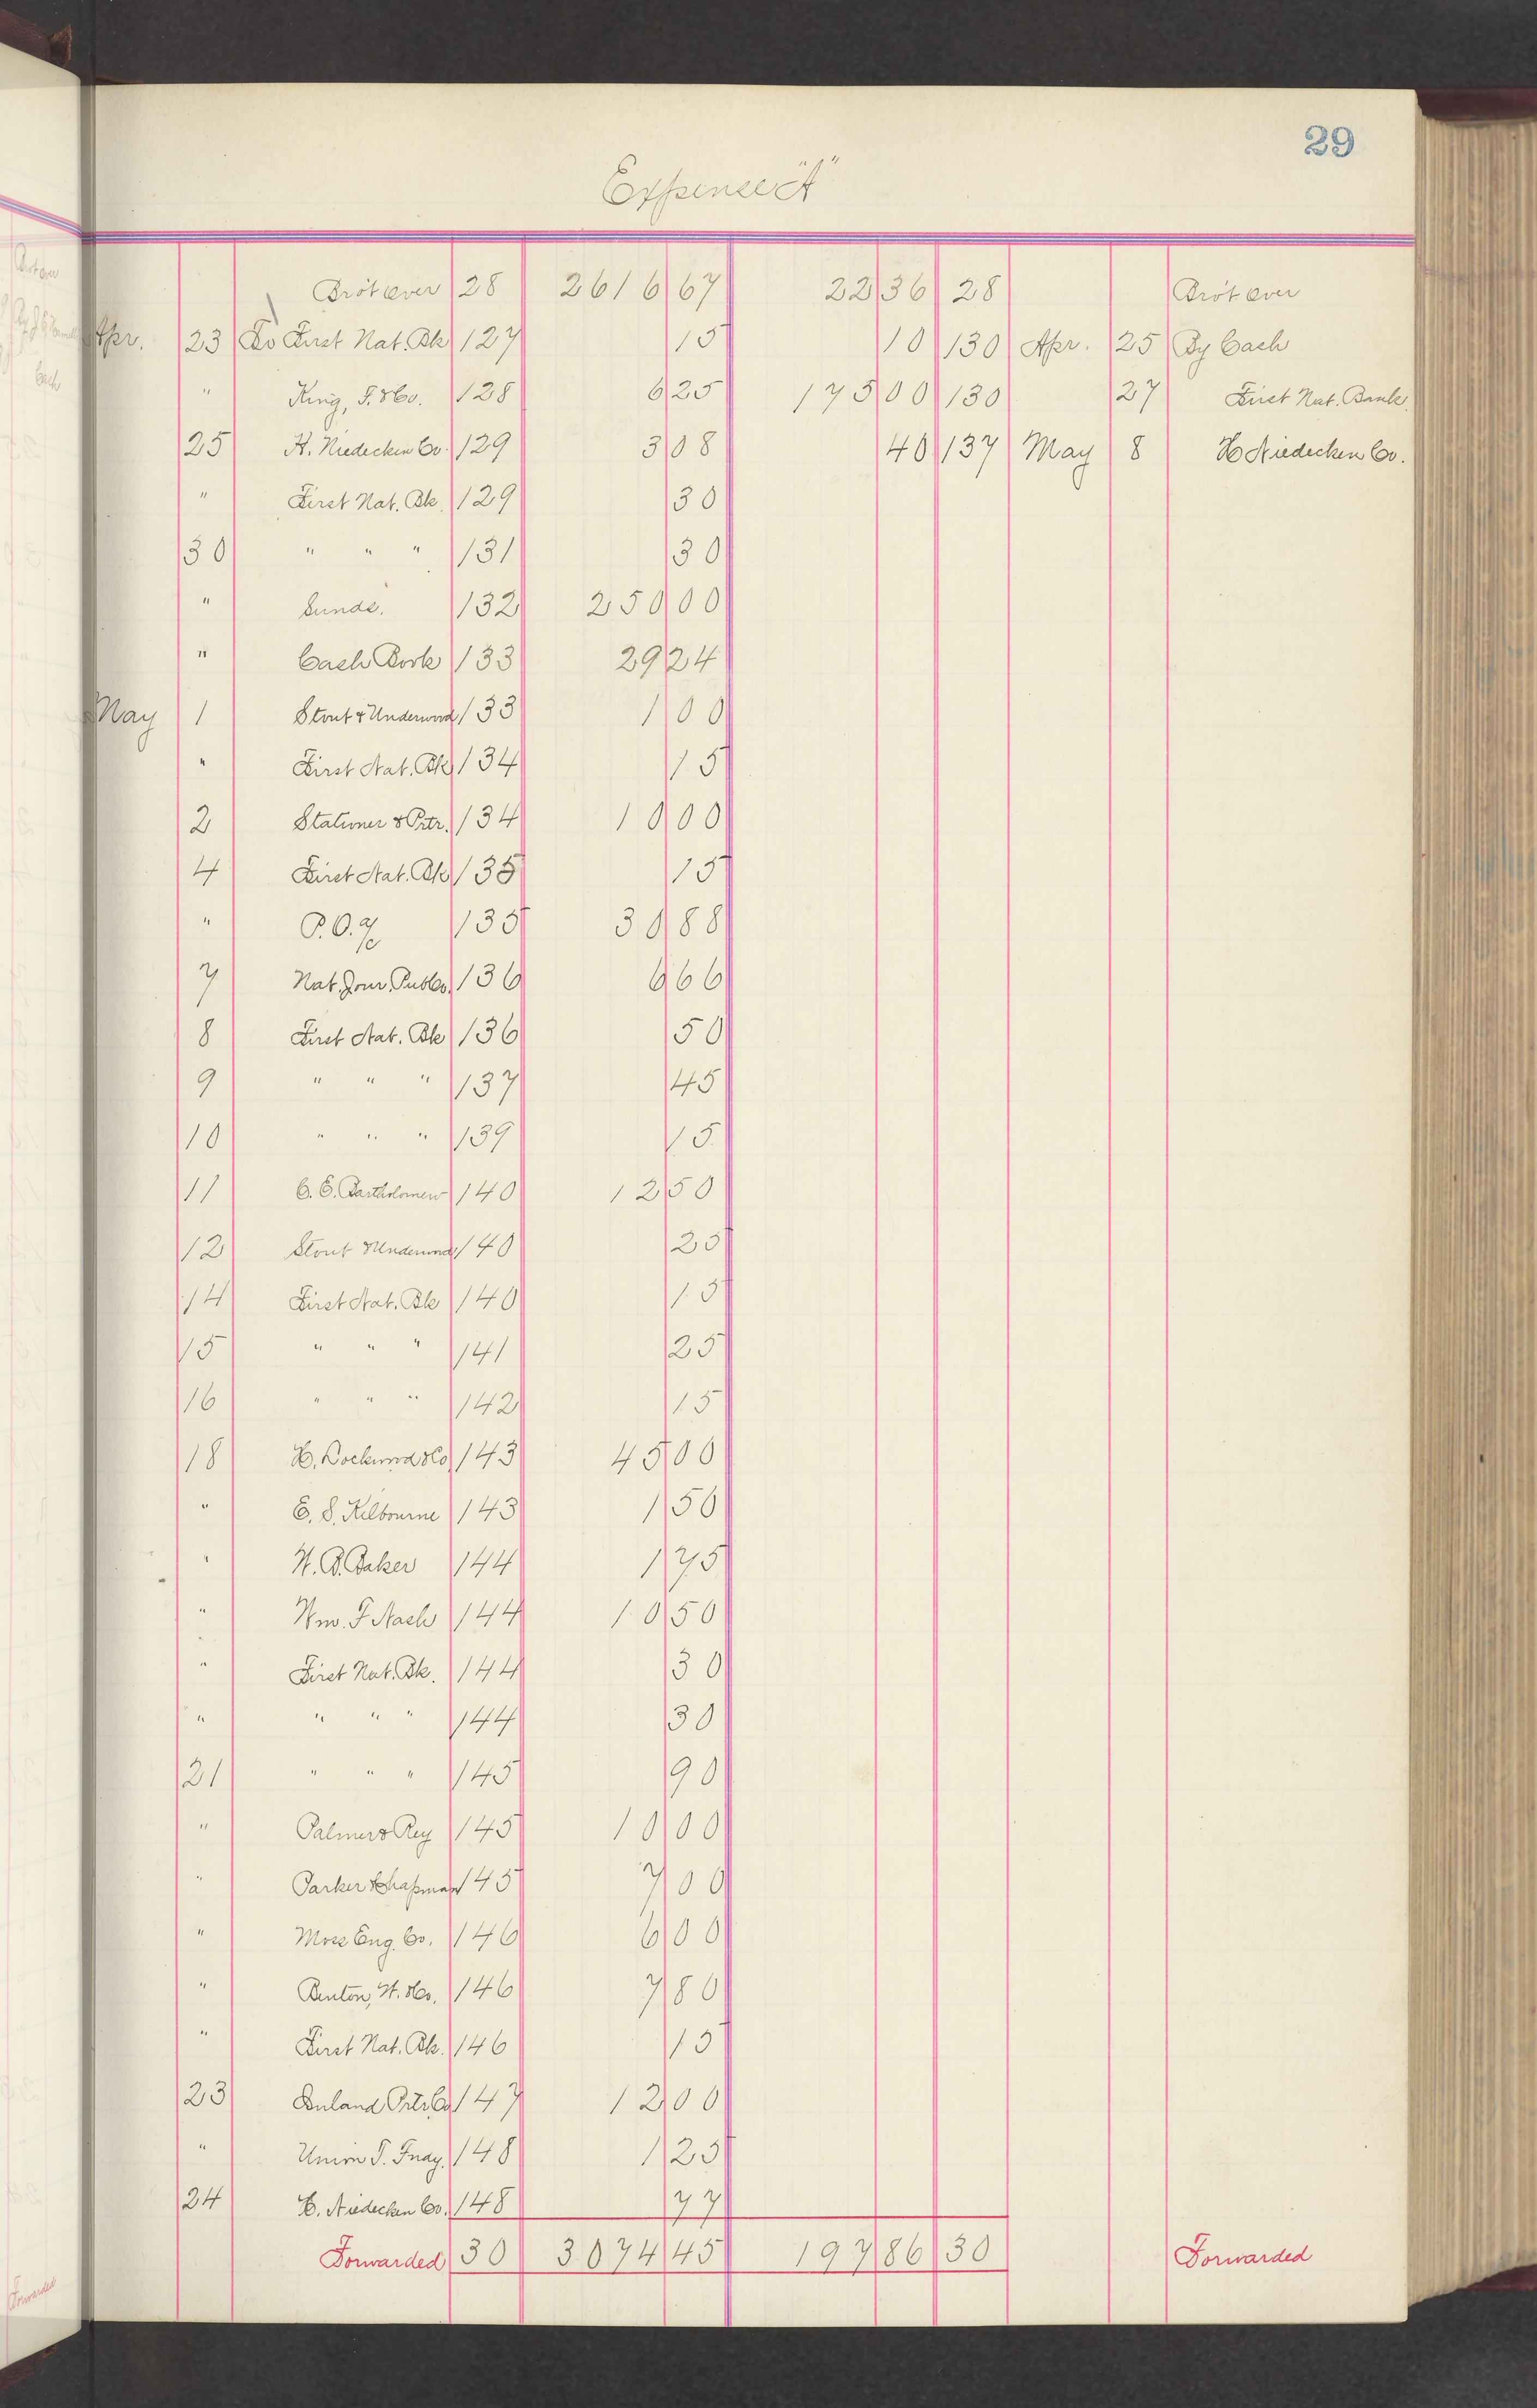 29
Expense "A"
Bro't over 28 2616 67 22 36 28 Bro't over
Apr. 23 To First Nat. Bk 127 15 10 130 Apr. 25 By Cash
" King, F. & Co. 128 6 25 175 00 130 27 First Nat. Bank
25 H. Niedecken Co. 129 3 08 40 137 May 8 H Niedecken Co.
" First Nat. Bk. 129 30
30 " " " 131 30
" Sunds. 132 250 00
" Cash Book 133 29 24
May 1 Stout & Underwood 133 1 00
" First Nat. Bk 134 15
2 Stationer & Prtr. 134 10 00
4 First Nat. Bk 135 15
" P.O. a/c 135 30 88
7 Nat. Jour. Pub Co. 136 6 66
8 First Nat. Bk 136 50
9 " " " 137 45
10 " " " 139 15
11 C. E. Bartholomew 140 12 50
12 Stout & Underwood 140 25
14 First Nat. Bk 140 15
15 " " " 141 25
16 " " " 142 15
18 H. Lockwood & Co 143 45 00
" E. S. Kilbourne 143 1 50
" W. B. Baker 144 1 75
" Wm. F Nash 144 10 50
" First Nat. Bk. 144 30
" " " " 144 30
21 " " " 145 90
" Palmer & Rey 145 10 00
" Parker & Chapman 145 7 00
" Moss Eng. Co. 146 6 00
" Benton, W. & Co. 146 7 80
" First Nat. Bk. 146 15
23 Inland Prtr Co 147 12 00
" Union T. Fndy. 148 1 25
24 H. Niedecken Co. 148 77
Forwarded 30 3074 45 197 86 30 Forwarded